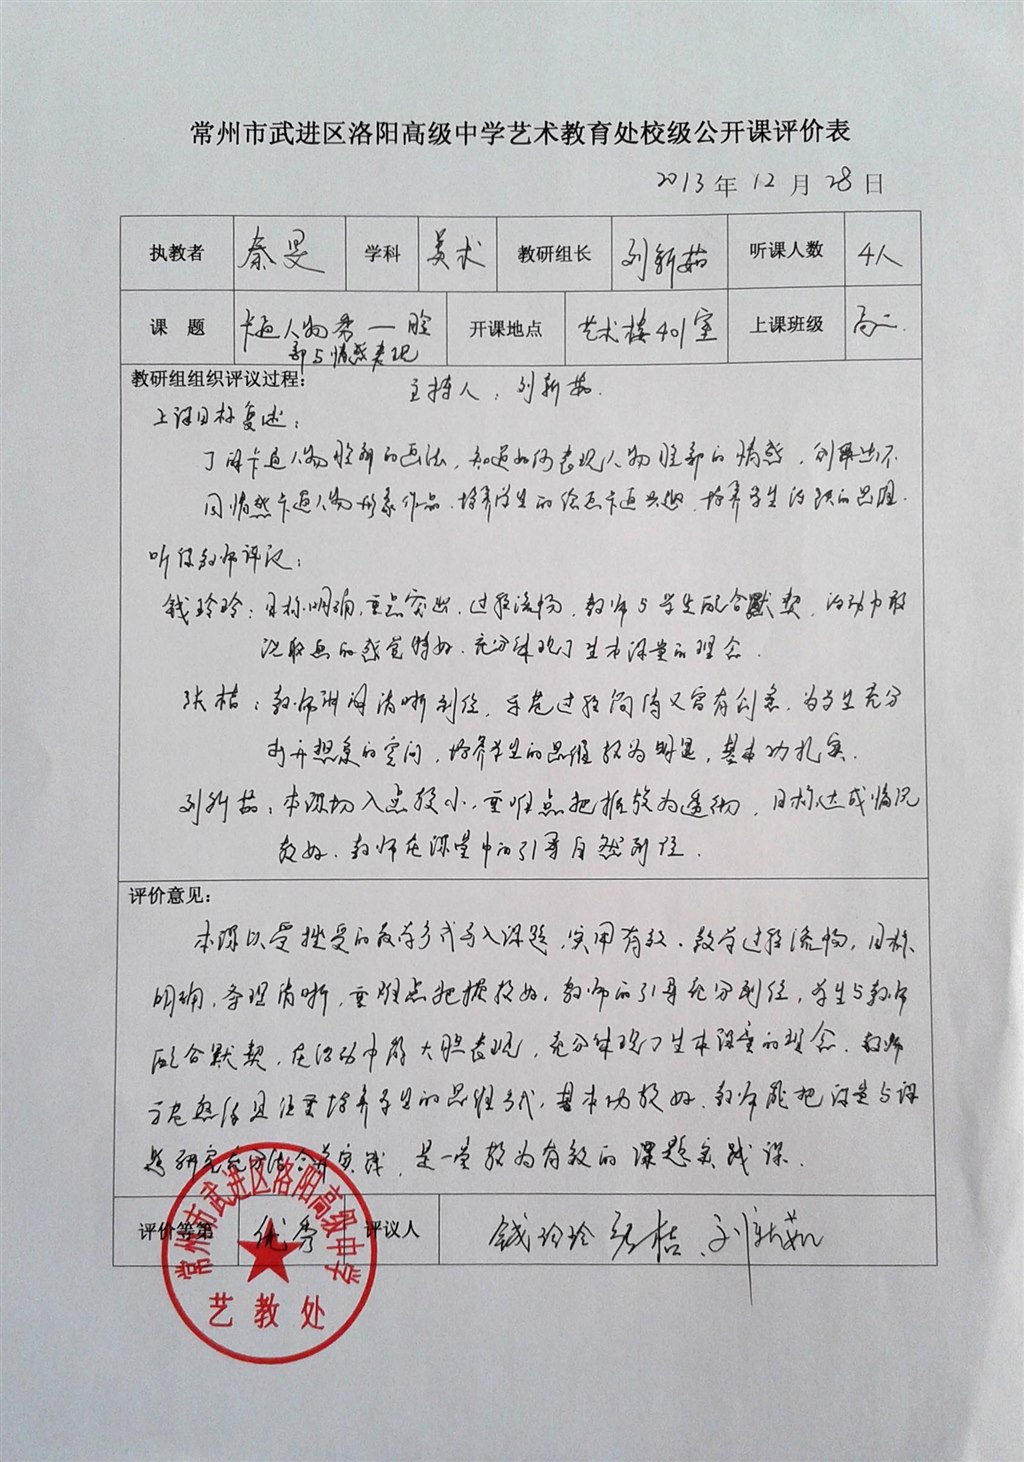 常州市武进区洛阳高级中学艺术教育处校级公开课评价表
2013年12月28日
执教者 秦旻 学科 美术 教研组长 刘新茹 听课人数 4人
课 题 卡通人物秀一脸 开课地点 艺术楼401室 上课班级 高二
部与情感表现
教研组组织评议过程: 主持人:刘新茹.
上课目标复述:
了解卡通人物脸部的画法,知道如何表现人物脸部的情感,创画出不
同情感卡通人物形象作品.培养学生的绘画卡通兴趣,培养学生活跃的思维.
听课教师评议:
钱玲玲:目标明确,重点突出.过程流畅.教师与学生配合默契,活动中敢
的感觉特好.充分体现了生本课堂的理念.
张桔:教师讲解清晰到位,示范过程简洁又富有创意.为学生充分
打开想象的空间,培养学生的思维较为明显,基本功扎实.
刘新茹:本课切入点较小,重难点把握较为透彻,目标达成情况
较好.教师在课堂中的引导自然到位.
评价意见:
本课以受挫受的教学方式导入课题,实用有效.教学过程流畅,目标
明确,条理清晰,重难点把握较好,教师的引导充分到位,学生与教师
配合默契,在活动中能大胆表现,充分体现了生本课堂的理念.教师
示范熟练且注重培养学生的思维方式,基本功较好.教师能把课堂与课
题研究充分结合并实践,是一堂较为有效的课题实践课.
评价等第 优秀 评议人 钱玲玲 张桔 刘新茹
常州市武进区洛阳高级中学
艺教处